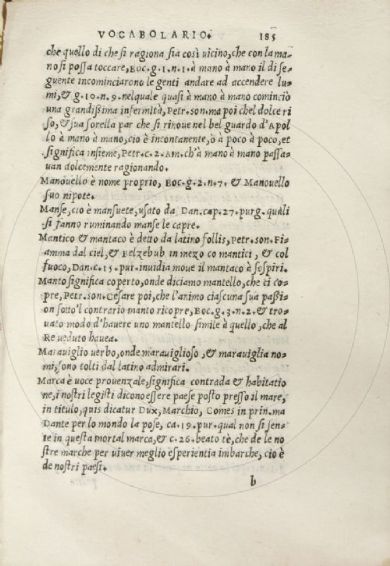 VOCABOLARIO. 185
che quello di che si ragiona sia così uicino, che con la ma
no si possa toccare, Boc. g. 1. n. 1. à mano à mano il di se
guente incominciarono le genti andare ad accendere lu
mi, & g. 10. n. 9. nel quale quasi à mano à mano cominciò
una grandissima infermità, Petr. son. ma poi chel dolce ri
so, & sua sorella par che si rinoue nel bel guardo d'Apol
lo à mano à mano, cio è incontanente, ò à poco à poco, et
significa insieme, Petr. c. 2. Am. ch'à mano à mano passa
uan dolcemente ragionando.
Manouello è nome proprio, Boc. g. 2. n. 7. & Manouello
suo nipote.
Manse, cio è mansuete, usato da Dan. cap. 27. purg. quali
si fanno ruminando manse le capre.
Mantico & mantaco è detto da latino follis, Petr. son. Fi-
amma dal ciel, & Belzebub in mezo co mantici, & col
fuoco, Dan. c. 15. pur. inuidia moue il mantaco è sospiri.
Manto significa coperto, onde diciamo mantello, che ci co-
pre, Petr. son. Cesare poi, che l'animo ciascuna sua passi
on sotto'l contrario manto ricopre, Boc. g. 3. n. 2. & tro-
uato modo d'hauere uno mantello simile à quello, che al
Re ueduto hauea.
Marauiglio uerbo, onde marauiglioso, & marauiglia no-
mi, sono tolti dal latino admirari.
Marca è uoce prouenzale, significa contrada & habitatio
ne, i nostri legisti dicono essere paese posto presso il mare,
in titulo, quis dicatur Dux, Marchio, Comes in prin. ma
Dante per lo mondo la pose, ca. 19. pur. qual non si sen-
te in questa mortal marca, & c. 26. beato tè, che de le no
stre marche per uiuer meglio esperientia imbarche, cio è
de nostri paesi.
b